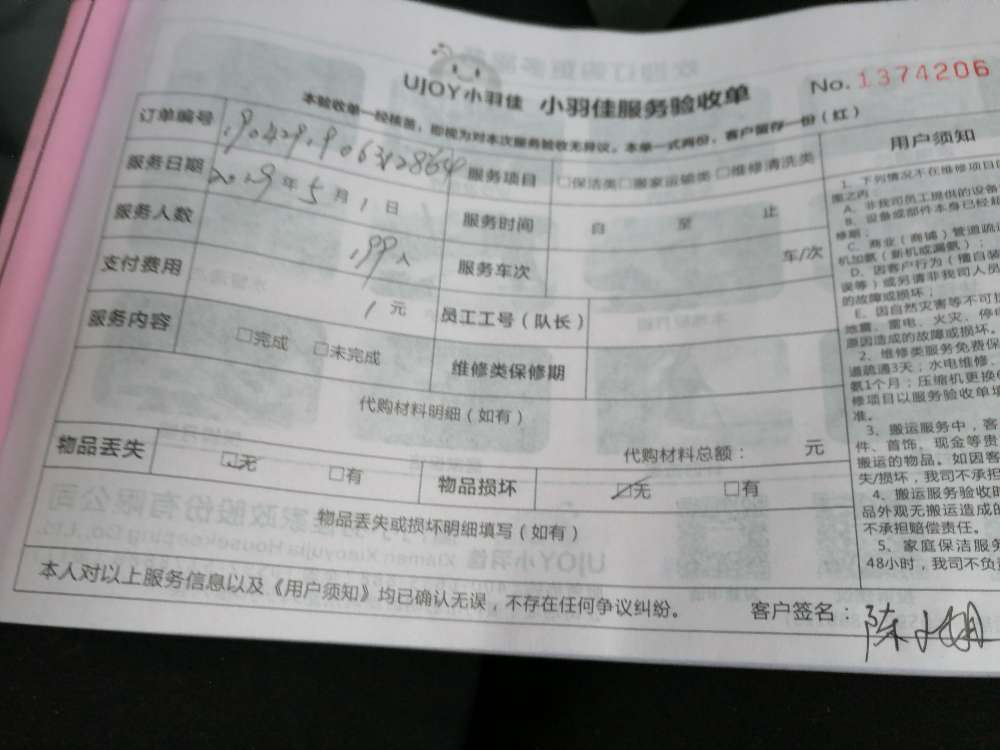 UJOY小羽佳 小羽佳服务验收单
No.1374206
本验收单一经核签，即视为对本次服务验收无异议。本单一式两份，客户留存一份（红）
订单编号 服务项目 □保洁类□搬家运输类 □维修清洗类
服务日期 年5月1日 服务时间 自 至 止
服务人数 服务车次 车/次
支付费用 1元 员工工号（队长）
服务内容 □完成 □未完成 维修类保修期
代购材料明细（如有）
代购材料总额： 元
物品丢失 □无 □有 物品损坏 □无 □有
物品丢失或损坏明细填写（如有）
本人对以上服务信息以及《用户须知》均已确认无误，不存在任何争议纠纷。
客户签名：陈
用户须知
1、下列情况不在维修项目
围之内：
A、非我司员工提供的设备
B、设备或部件本身已经
修期；
C、商业（商铺）管道疏
机加氨（新机或漏氨）；
D、因客户行为（擅自装
误等）或另请非我司人员
的故障或损坏；
E、因自然灾害等不可
地震、雷电、火灾、停
原因造成的故障或损坏。
2、维修类服务免费保
道疏通3天；水电维修、
氨1个月；压缩机更换
修项目以服务验收单填
准。
3、搬运服务中，客
件、首饰、现金等贵
搬运的物品。如因客
失/损坏，我司不承担
4、搬运服务验收时
品外观无搬运造成的
不承担赔偿责任。
5、家庭保洁服务
48小时，我司不负